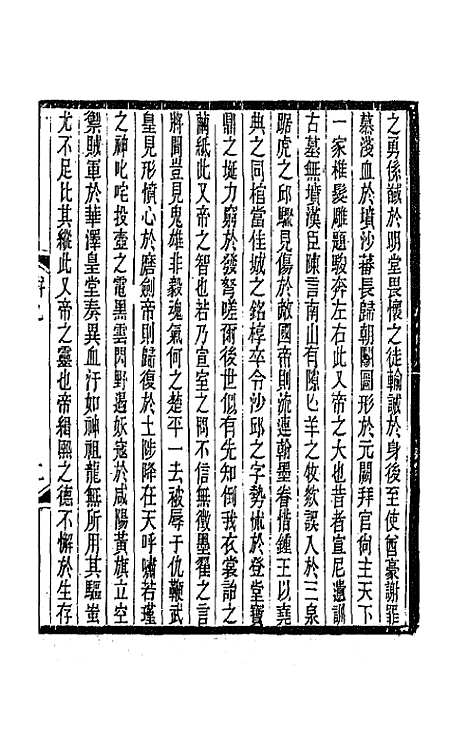 之勇係馘於明堂畏懷之徒輸誠於身後至使酋豪謝罪
慕淺血於墳沙蕃長歸朝闕圖形於元闕拜官尚主天下
一家椎髮雕題駿奔左右此又帝之大也昔者宣尼遺訓
古墓無墳漢臣陳言南山有隙亡羊之牧欻誤入於三泉
踞虎之邱驟見傷於敵國帝則流連翰墨眷惜鍾王以堯
典之同棺當佳城之銘椁卒令沙邱之字勢怵於登堂寶
鼎之埏力窮於發弩嗟爾後世似有先知倒我衣裳諦之
繭紙此又帝之智也若乃宣室之問不信無徵墨翟之言
將聞豈見鬼雄非毅魂氣何之楚平一去破辱于仇鞭武
皇見形憤心於磨劍帝則歸復於土陟降在天呼嘯若瑾
之神叱咤投壺之電黑雲閃野遏妖寇於咸陽黃旗立空
禦賊軍於華澤皇堂奏異血汙如神祖龍無所用其驅蚩
尤不足比其縱此又帝之靈也帝緝熙之德不懈於生存